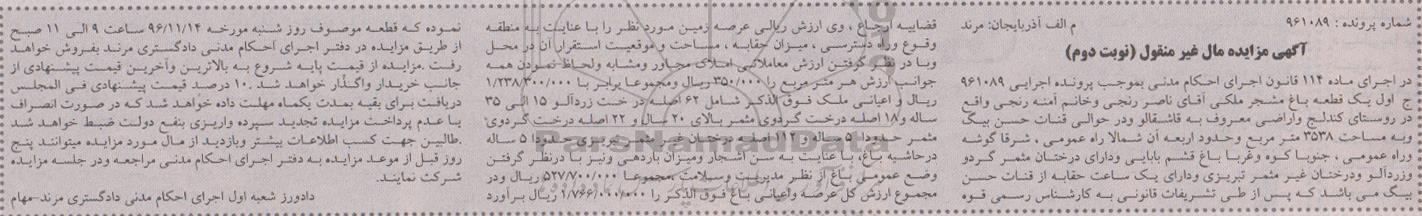 شماره پرونده : ۹۶۱۰۸۹ م الف آذربایجان: مرند
آگهی مزایده مال غیر منقول (نوبت دوم)
در اجرای ماده ۱۱۴ قانون اجرای احکام مدنی بموجب پرونده اجرایی ۹۶۱۰۸۹
ج اول یک قطعه باغ مشجر ملکی آقای ناصر رنجی وخانم آمنه رنجی واقع
در روستای کندلج واراضی معروف به قاشقالو ودر حوالی قنات حسن بیگ
وبه مساحت ۳۵۳۸ متر مربع وحدود اربعه آن شمالا راه عمومی ، شرقا گوشه
وراه عمومی ، جنوبا کوه وغربا باغ قشم بابایی ودارای درختان مثمر گردو
وزردآلو ودرختان غیر مثمر تبریزی ودارای یک ساعت حقابه از قنات حسن
بیگ می باشد که پس از طی تشریفات قانونی به کارشناس رسمی قوه
قضاییه ارجاع ، وی ارزش ریالی عرصه زمین مورد نظر را با عنایت به منطقه
وقوع وراه دسترسی ، میزان حقابه ، مساحت و موقعیت استقرار آن در محل
وبا در نظر گرفتن ارزش معاملاتی املاک مجاور ومشابه ولحاظ نمودن همه
جوانب ارزش هر متر مربع را ۳۵۰/۰۰۰ریال ومجموعا برابر با ۱/۲۳۸/۳۰۰/۰۰۰
ریال و اعیانی ملک فوق الذکر شامل ۶۲ اصله در خت زردآلو ۱۵ الی ۳۵
ساله و۱۸ اصله درخت گردوی مثمر بالای ۲۰ سال و ۲۲ اصله درخت گردوی
مثمر حدودا ۵ ساله و ۱۱۲ اصله درختان غیر مثمر تبریزی حدودا ۵ ساله
درحاشیه باغ، با عنایت به سن اشجار ومیزان باردهی ونیز با درنظر گرفتن
وضع عمومی باغ از نظر مدیریت وسلامت ،مجموعا ۵۲۷/۷۰۰/۰۰۰ ریال ودر
مجموع ارزش کل عرصه واعیانی باغ فوق الذکر را ۱/۷۶۶/۰۰۰/۰۰۰ ریال برآورد
نموده که قطعه موصوف روز شنبه مورخه ۹۶/۱۱/۱۴ ساعت ۹ الی ۱۱ صبح
از طریق مزایده در دفتر اجرای احکام مدنی دادگستری مرند بفروش خواهد
رفت .مزایده از قیمت پایه شروع به بالاترین وآخرین قیمت پیشنهادی از
جانب خریدار واگذار خواهد شد .۱۰ درصد قیمت پیشنهادی فی المجلس
دریافت برای بقیه بمدت یکماه مهلت داده خواهد شد که در صورت انصراف
یا عدم پرداخت مزایده تجدید سپرده واریزی بنفع دولت ضبط خواهد شد
.طالبین جهت کسب اطلاعات بیشتر وبازدید از مال مورد مزایده میتوانند پنج
روز قبل از موعد مزایده به دفتر اجرای احکام مدنی مراجعه ودر جلسه مزایده
شرکت نمایند.
دادورز شعبه اول اجرای احکام مدنی دادگستری مرند-مهام
ParsNamadData